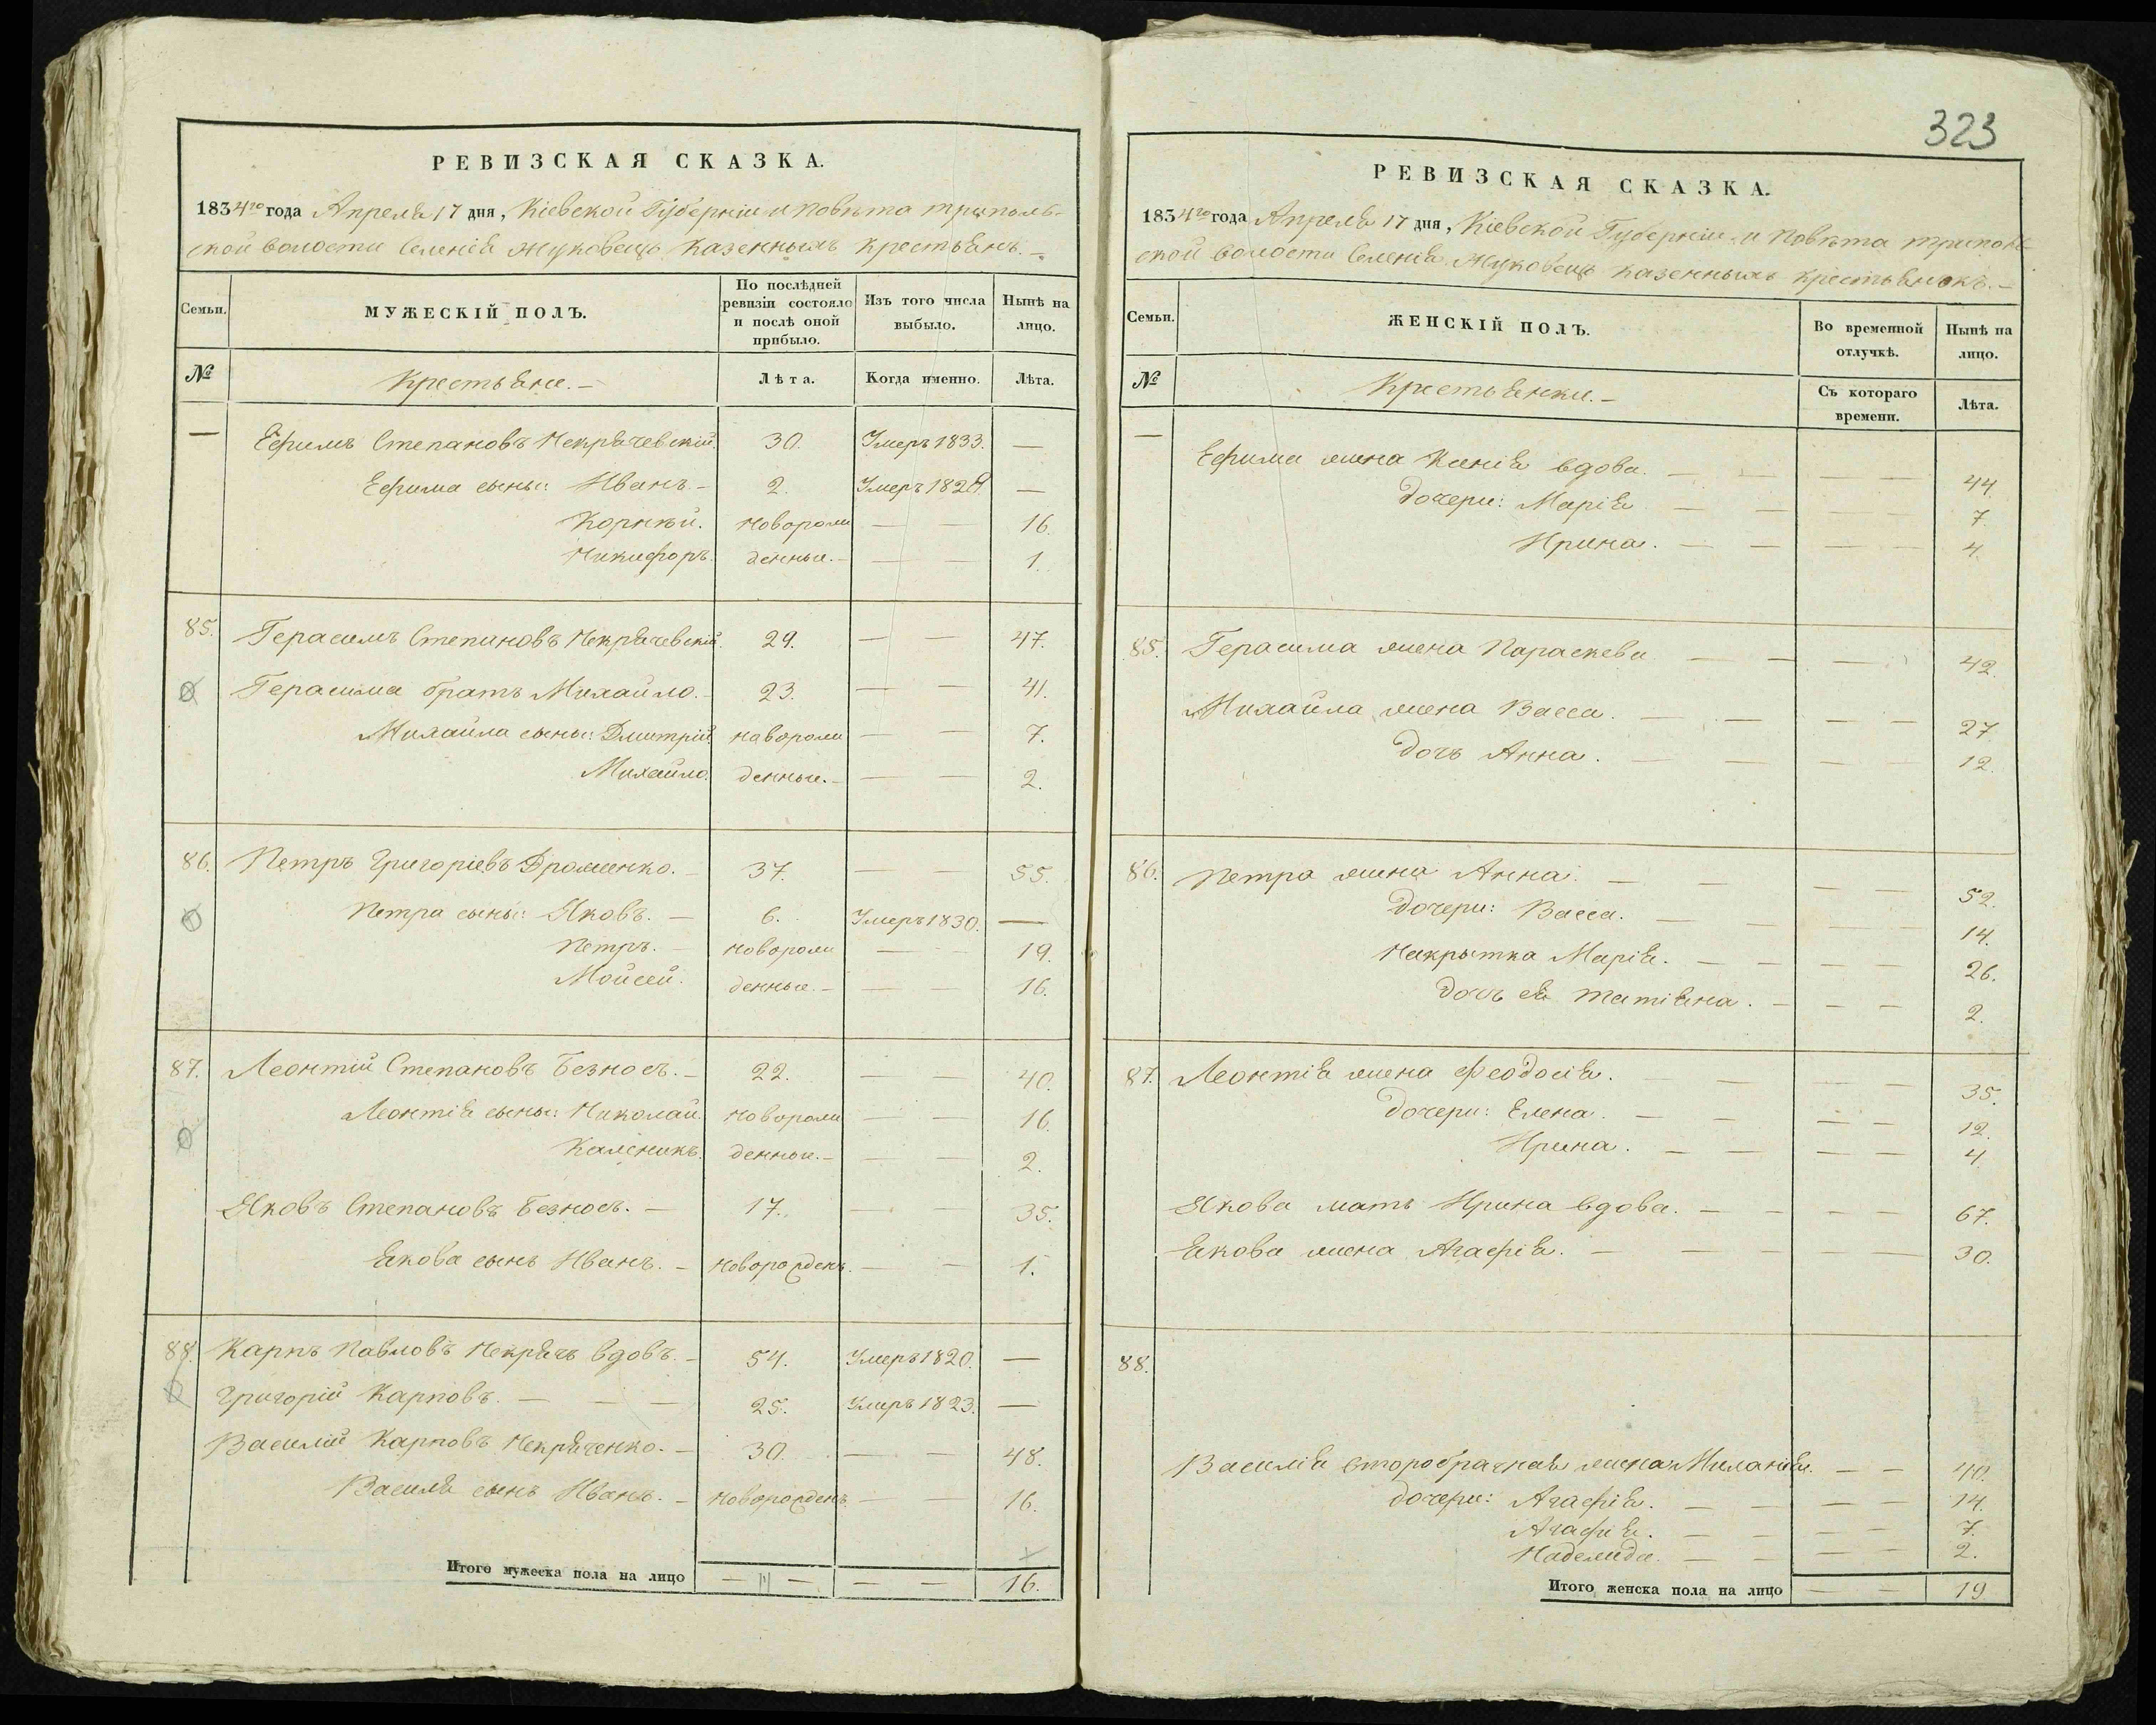 323
РЕВИЗСКАЯ СКАЗКА.
1834го года Апреля 17 дня, Кіевской Губерніи и Повѣта Триполь-
ской волости Селенія Жуковецъ Казенныхъ Крестьянъ. —
Семьи. МУЖЕСКІЙ ПОЛЪ. По послѣдней ревизіи состояло и послѣ оной прибыло. Изъ того числа выбыло. Нынѣ на лицо.
№ Крестьяне. — Лѣта. Когда именно. Лѣта.
— Ефимъ Степановъ Некрячевскій. 30. Умеръ 1833. —
Ефима сыны: Иванъ. — 2. Умеръ 1829. —
Корнѣй. новорож 16.
Никифоръ. денные. — 1.
85. Герасимъ Степановъ Некрячевскій. 29. — — 47.
Герасима братъ Михайло. — 23. — — 41.
Михайла сыны: Дмитрій. новорож — — 7.
Михайло. денные. — — — 2.
86. Петръ Григоріевъ Дроженко. — 37. — — 55.
Петра сыны: Яковъ. — 6. Умеръ 1830. —
Петръ. — новорож — — 19.
Мойсей. денные. — — — 16.
87. Леонтій Степановъ Безносъ. — 22. — — 40.
Леонтія сыны: Николай. новорож — — 16.
Каленикъ. денные. — — — 2.
Яковъ Степановъ Безносъ. — 17. — — 35.
Якова сынъ Иванъ. — новорожденъ. — — 1.
88. Карпъ Павловъ Некрячъ вдовъ. — 54. Умеръ 1820. —
Григорій Карповъ. — — — 25. Умеръ 1823. —
Василій Карповъ Некряченко. — 30. — — 48.
Василя сынъ Иванъ. — новорожденъ. — — 16.
Итого мужеска пола на лицо — — — — 16.
РЕВИЗСКАЯ СКАЗКА.
1834го года Апреля 17 дня, Кіевской Губерніи и Повѣта Триполь
ской волости Селенія Жуковецъ Казенныхъ Крестьянокъ. —
Семьи. ЖЕНСКІЙ ПОЛЪ. Во временной отлучкѣ. Нынѣ на лицо.
№ Крестьянки. — Съ котораго времени. Лѣта.
— Ефима жена Ксенія вдова. — — — — 44.
дочери: Марія — — — — 7.
Ирина. — — — — 4.
85. Герасима жена Параскева — — — 42.
Михайла жена Васса. — — — — 27.
дочь Анна. — — — — 12.
86. Петра жена Анна. — — — — 52.
дочери: Васса. — — — — 14.
Накрытка Марія. — — — — 26.
дочъ ея Татіяна. — — — 2.
87. Леонтія жена Феодосія. — — — — 35.
дочери: Елена. — — — — 12.
Ирина. — — — — 4.
Якова мать Ирина вдова. — — — — 67.
Якова жена Агафія. — — — 30.
88.
Василія второбрачная жена Миланія. — — 40.
дочери: Агафія. — — — — 14.
Агафія. — — — — 7.
Надежда. — — — — 2.
Итого женска пола на лицо — — 19